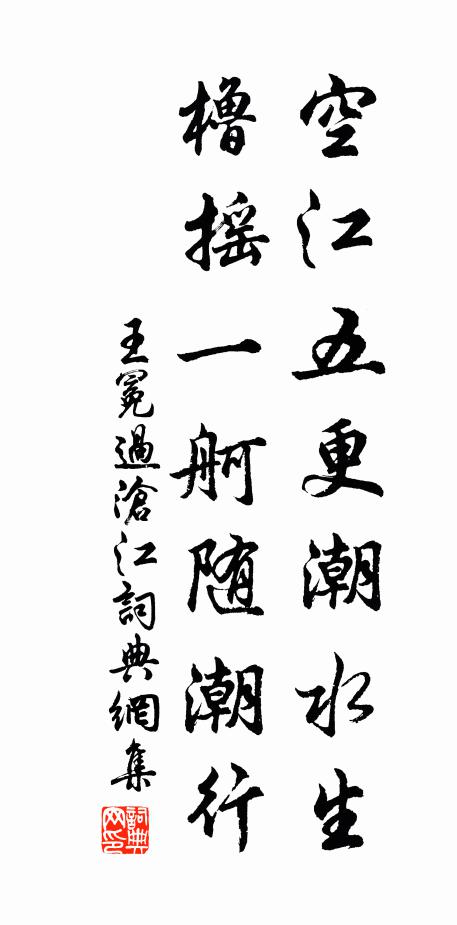 空江五更潮水生
櫓摇一舸随潮行
王冕過滄江詞典網集
詞典网印